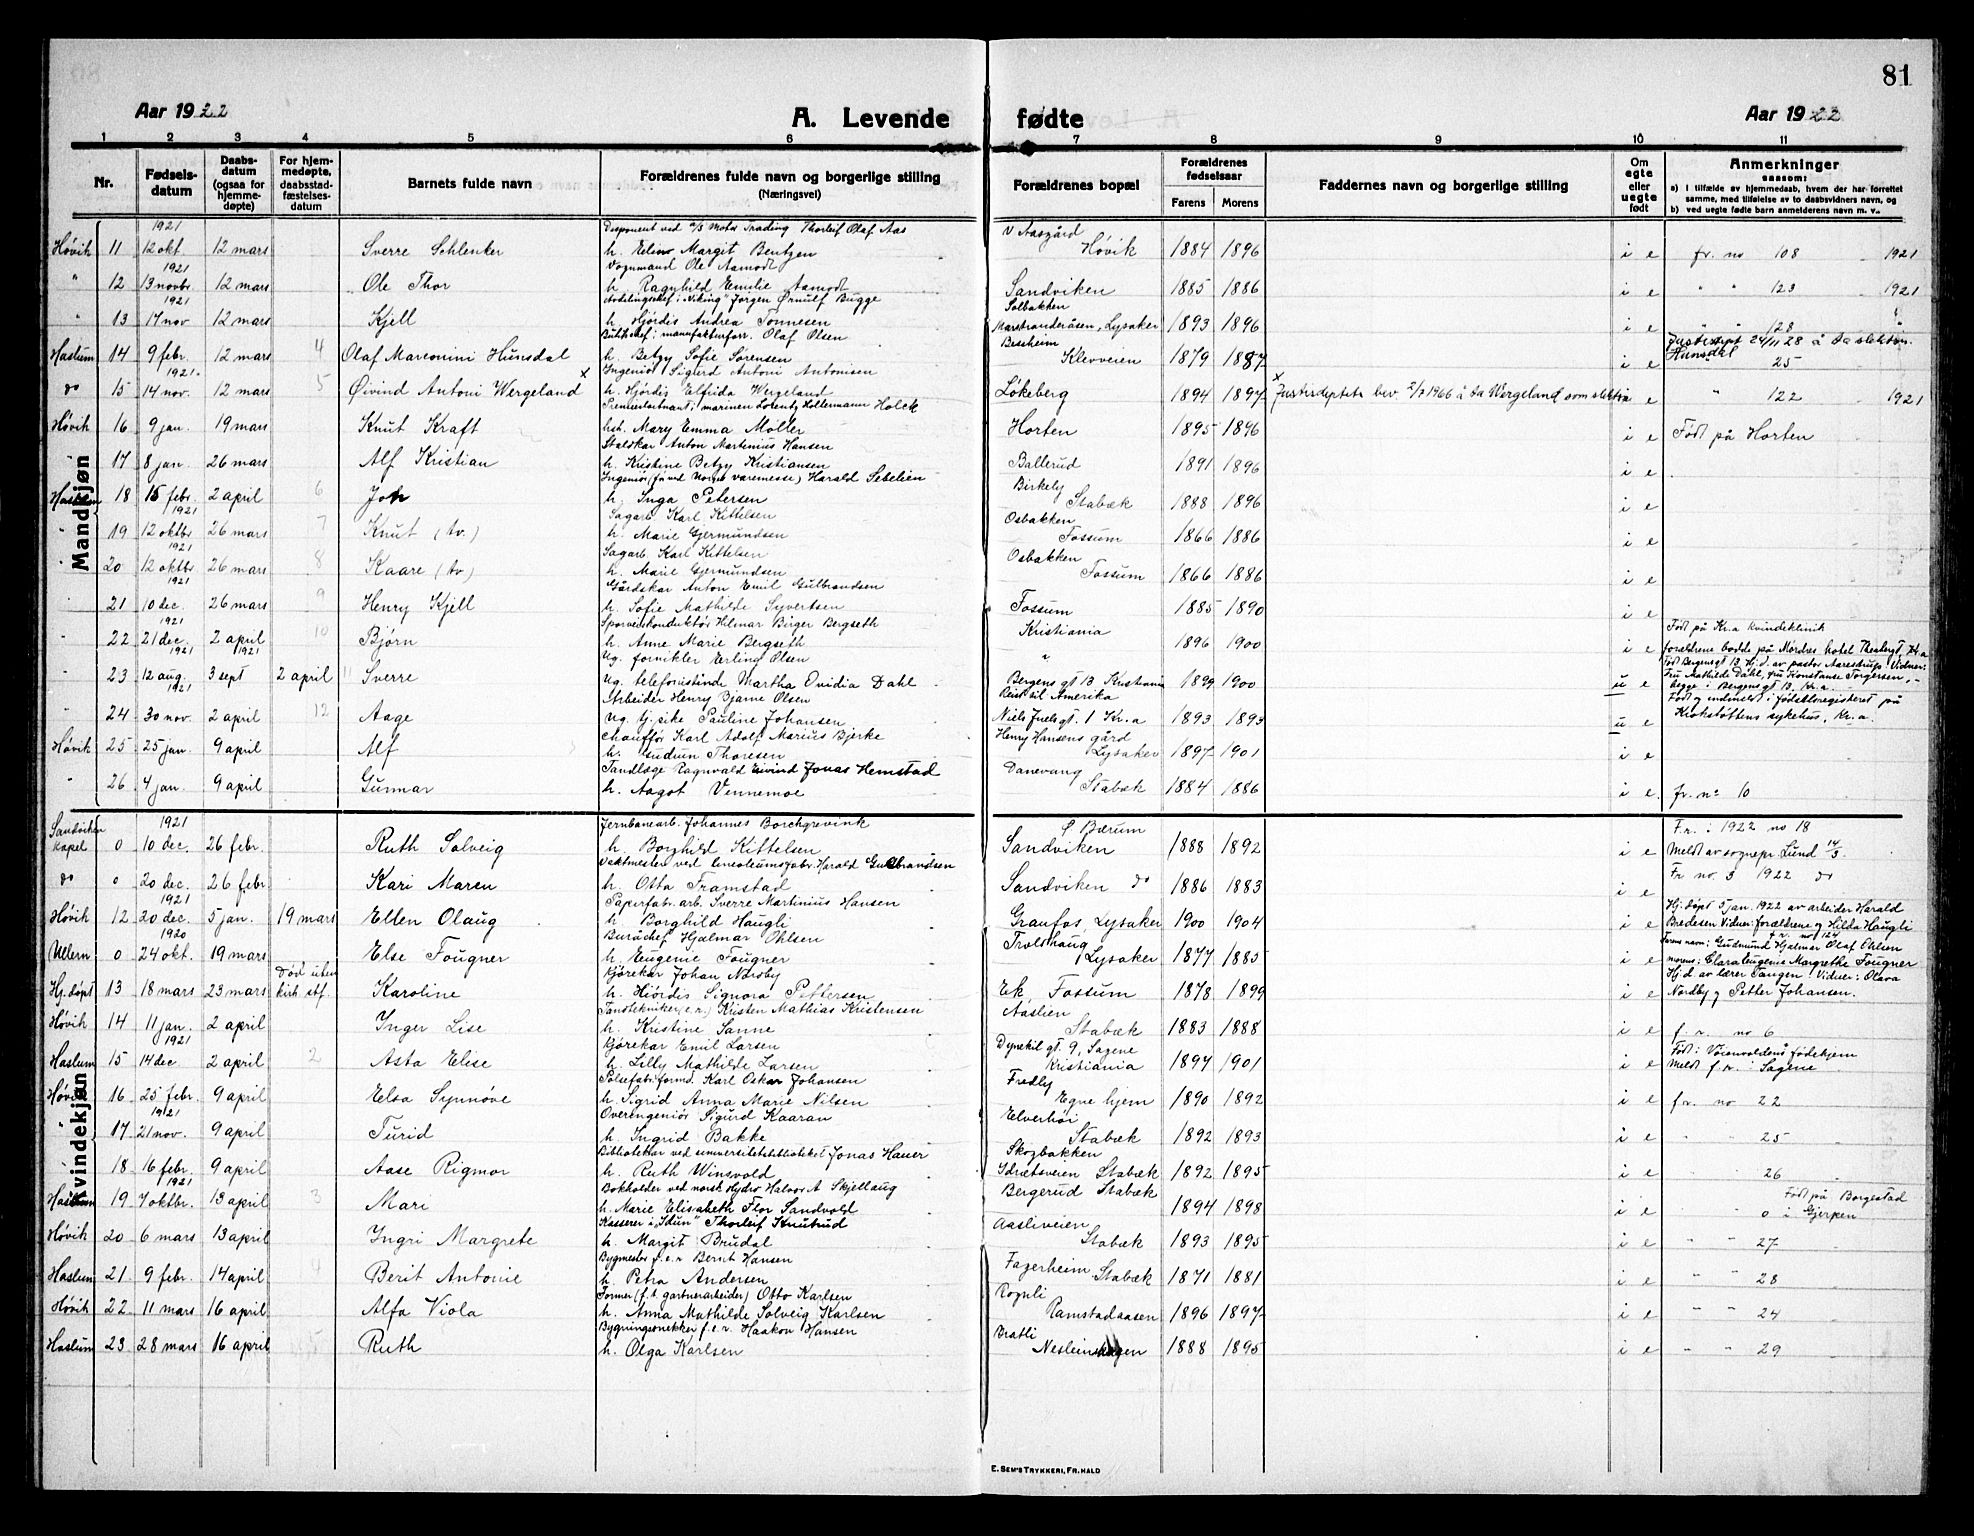 81
Aar 1922 A. Levende fødte Aar 1922
1 2 3 4 5 6 7 8 9 10 11
Nr. Fødselsdatum Daabsdatum (ogsaa for hjemmedøpte) For hjemmedøpte, daabsstadfæstelsesdatum Barnets fulde navn Forældrenes fulde navn og borgerlige stilling (Næringsvei) Forældrenes bopæl Forældrenes fødselsaar Farens Morens Faddernes navn og borgerlige stilling Om egte eller uegte født Anmerkninger saasom: a) i tilfælde av hjemmedaab, hvem der har forrettet samme, med tilføielse av to daabsvidners navn, og b) ved uegte fødte barn anmelderens navn m. v.
Mandkjøn
1921 Disponent ved a/s Motor Trading Thorleif Olaf Aas v Aasgård
Høvik 11 12 okt. 12 mars Sverre Schlenker h. Eline Margit Bentzen Høvik 1884 1896 i e fr. no 108 1921
1921 Vognmand Ole Aamodt
" 12 13 novbr. 12 mars Ole Thor h. Ragnhild Emilie Aamodt Sandviken 1885 1886 i e " " 123 1921
1921 Avdelingschef i "Viking" Jørgen Ørnulf Bugge Solbakken
" 13 17 nov 12 mars Kjell h. Hjørdis Andrea Tønnesen Marstranderåsen, Lysaker 1893 1896 i e " " 128 "
Butikchef i manufakturforr. Olaf Olsen Bescheim Justisdept 24/11 28 å ta slektsn. Hunsdal
Haslum 14 9 febr. 12 mars 4 Olaf Marconini Hunsdal h. Betzy Sofie Sørensen Klevveien 1879 1887 i e 25
1921. Ingeniør Sigurd Antoni Antonisen
do 15 14 nov. 12 mars 5 Øivind Antoni Wergeland x h. Hjørdis Elfrida Wergeland Løkeberg 1894 1897 x Justisdeptets bev. 2/7 1966 å ta Wergeland som slektsn. e " 122 1921
Premierløitnant i marinen Lorentz Holtermann Holck
Høvik 16 9 jan. 19 mars Knut Kraft h. Mary Emma Møller Horten 1895 1896 i e Født på Horten
Staldkar Anton Martenius Hansen
" 17 8 jan. 26 mars Alf Kristian h. Kristine Betzy Kristiansen Ballerud 1891 1896 i e
Ingeniør ved Norges varemesse) Harald Sebelien Birkely
Haslum 18 15 febr. 2 april 6 h. Inga Petersen Stabæk 1888 1896 i e
1921 Sagarb. Karl Kittelsen Osbakken
" 19 12 oktbr 26 mars 7 Knut (tv.) h. Marie Gjermundsen Fossum 1866 1886 i e
1921 Sagarb. Karl Kittelsen Osbakken
" 20 12 oktbr. 26 mars 8 Kaare (tv) h. Marie Gjermundsen Fossum 1866 1886 i e
1921 Gårdskar Anton Emil Gulbrandsen
" 21 10 dec. 26 mars 9 Henry Kjell h. Sofie Mathilde Syvertsen Fossum 1885 1890 i e
1921 Sporveiskonduktør Hilmar Birger Bergseth Kristiania Født på Kr.a kvindeklinik
" 22 21 dec. 2 april 10 Bjørn h. Anne Marie Bergseth " 1896 1900 i e forældrene bodde på Nordres hotel Thenbergt. Kr.a
1921 1921 Ug. fornikler Erling Olsen Født Bergensgt 13 Hj.d. av pastor Aarestrup. Vidner:
" 23 12 aug. 3 sept 2 april 11 Sverre Ug. telefonistinde Martha Ovidia Dahl Bergens gt 13 Kristiania 1899 1900 u e Fru Mathilde Dahl, fru Konstanse Torgersen, begge i Bergensgt 13, Kr.a.
1921 Arbeider Henry Bjarne Olsen Reist til Amerika Født og indmeldt i fødselsregisteret på
" 24 30 nov. 2 april 12 Aage Ug. tj.pike Pauline Johansen Niels Juels gt. 1 Kr.a 1893 1893 u e Krohstøttens sykehus, Kr.a.
Chauffør Karl Adolf Marius Bjerke Henry Hansens gård
Høvik 25 25 jan. 9 april Alf h. Gudrun Thoresen Lysaker 1897 1901 i e
Tandlæge Ragnvald Eivind Jonas Hemstad Danevang
" 26 4 jan. 9 april Gunnar h. Aagot Vennemoe Stabæk 1884 1886 i e. fr. no 10
Kvindekjøn
1921 Jernbanearb. Johannes Borchgrevink Ø Bærum F.r. : 1922 no 18
Sandviken kapel 0 10 dec. 26 febr. Ruth Solveig h. Borghild Kittelsen Sandviken 1888 1892 i e Meldt av sognepr. Lund 14/3.
Vektmester ved linoleumsfabr. Harald Gulbrandsen Fr no. 3 1922 do
do 0 20 dec. 26 febr. Kari Maren h. Otta Framstad Sandviken do 1886 1883 i e
1921 Paperfabr.arb. Sverre Martinius Hansen Hj. døpt 5 jan. 1922 av arbeider Harald
Høvik 12 20 dec. 5 jan. 19 mars Ellen Olaug h. Borghild Haugli Granfos, Lysaker 1900 1904 i e Bredesen Vidner: forældrene og Hilda Haugli
1920 Buråchef Hjalmar Ohlsen Troldhaug f.r. no 124 Farens navn: Gudmund Hjalmar Olaf Ohlsen
Ullern 0 24 okt. 19 mars Else Fougner h. Eugenie Fougner Lysaker 1877 1885 i e morens: Clara Eugenie Margrethe Fougner
død uten kirk. stf. Kjørekar Johan Nordby Hj.d. av lærer Tangen. Vidner: Olava
Hj. døpt 13 18 mars 23 mars Karoline h. Hjørdis Signora Pettersen Ek, Fossum 1878 1899 i e Nordby og Petter Johansen.
Tandtekniker (e.r.) Kristen Mathias Kristensen Aaslien
Høvik 14 11 jan. 2 april Inger Lise h. Kristine Sanne Stabæk 1883 1888 i e f.r. no 6
1921 Kjørekar Emil Larsen Dynekil gt. 9, Sagene Født i Voienvoldens fødehjem
Haslum 15 14 dec 2 april 2 Asta Elise h. Lilly Mathilde Larsen Kristiania 1894 1901 i e Meldt f.r. i Sagene
Pølsefabr. formd. Karl Oskar Johansen Fredly
Høvik 16 25 febr. 9 april Elsa Synnøve h. Sigrid Anna Marie Nilsen Egne hjem 1890 1892 i e f.r. no 22
1921 Overingeniør Sigurd Kaaran Elverhøi
" 17 21 nov. 9 april Turid h. Ingrid Bakke Stabæk 1892 1893 i e " " 25
Bibliotekar ved universitetsbiblioteket Jonas Hauer Skogbakken
" 18 16 febr. 9 april Aase Rigmor h. Ruth Winsvold Idrætsveien Stabæk 1892 1895 i e " " 26
1921 Bokholder ved norsk Hydro Halvor A Skjellaug Bergerud Stabæk Født på Borgestad
Haslum 19 7 oktbr. 13 april 3 Mari h. Marie Elisabeth Flor Sandvold 1894 1898 i e " " 0 i Gjerpen
Kasserer i "Idun" Thorleif Knutrud Aasliveien
Høvik 20 6 mars 13 april Ingri Margrete h. Margit Brudal Stabæk 1893 1895 i e " " 27
Bygmester f.e.r Bernt Hansen
Haslum 21 9 febr. 14 april 4 Berit Antonie h. Petra Andersen Fagerheim Stabæk 1871 1881 i e " " 28
Former (f.t. gartnerarbeider) Otto Karlsen Rognli
Høvik 22 11 mars 16 april Alfa Viola h. Anna Mathilde Solveig Karlsen Ramstadaasen 1896 1897 i e " " 24
Bygningssnekker f.e.r. Haakon Hansen Bratli
Haslum 23 28 mars 16 april 5 Ruth h. Olga Karlsen 1888 1895 i e " " 29
E. SEM'S TRYKKERI, FR.HALD